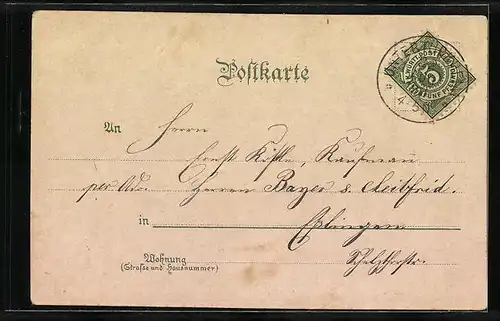 Postkarte
An Herrn
Ernst Köstle, Kaufmann
per Adr. Herren Bayer & Leibfried.
in Esslingen
Wohnung
(Strasse und Hausnummer)